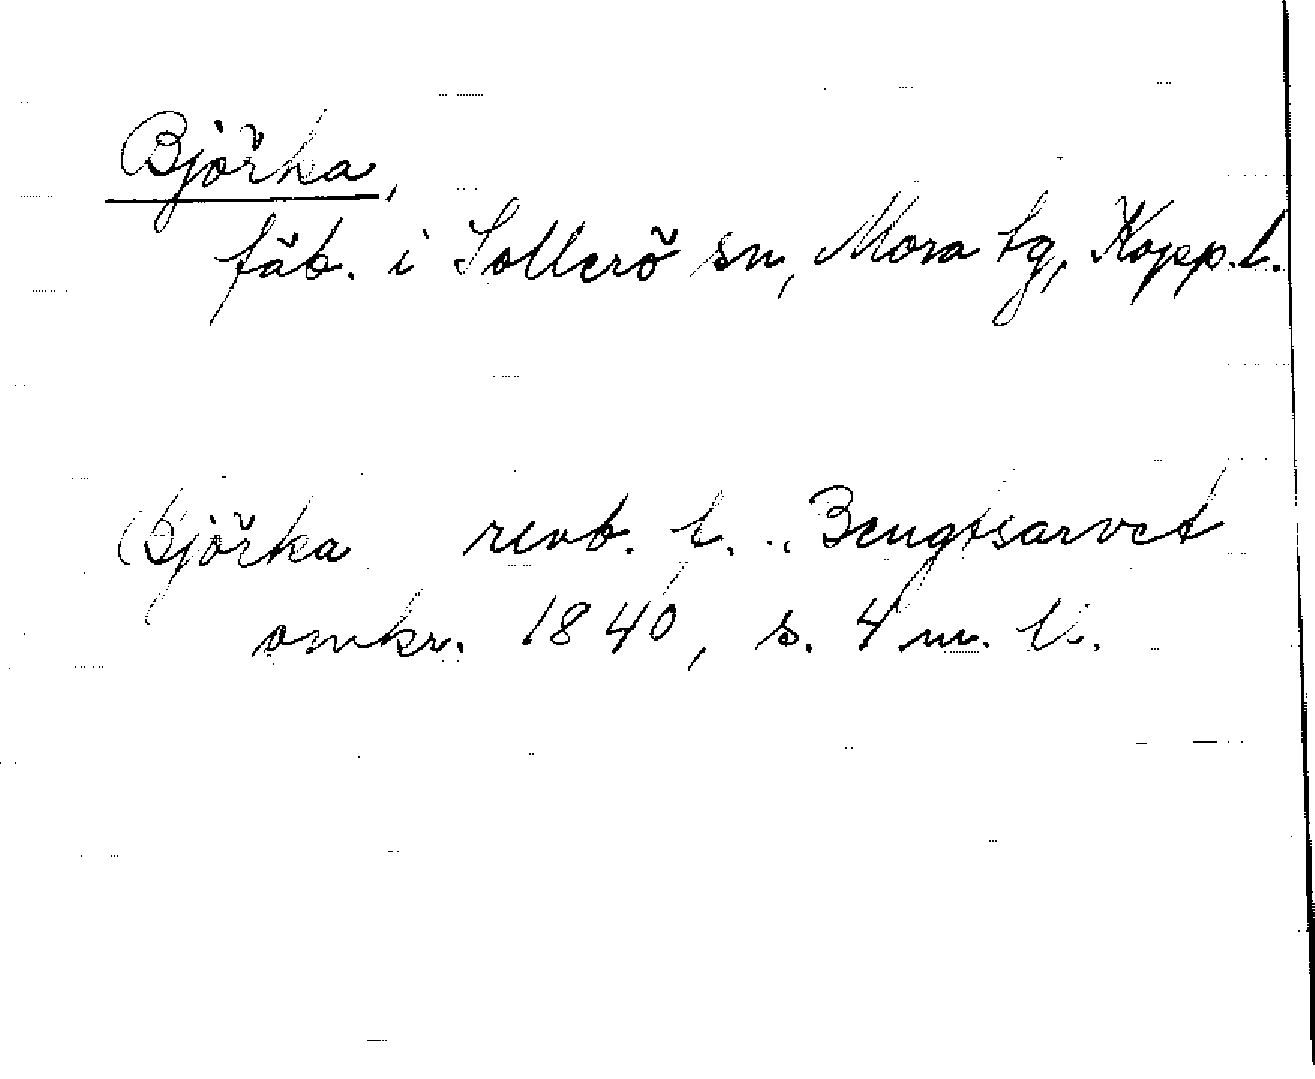 Björka,
fäb. i Sollerö sn, Mora tg, Kopp. l.
Björka renb. t. .. Bengtsarvet
omkr. 1840, s. 4 m. U.